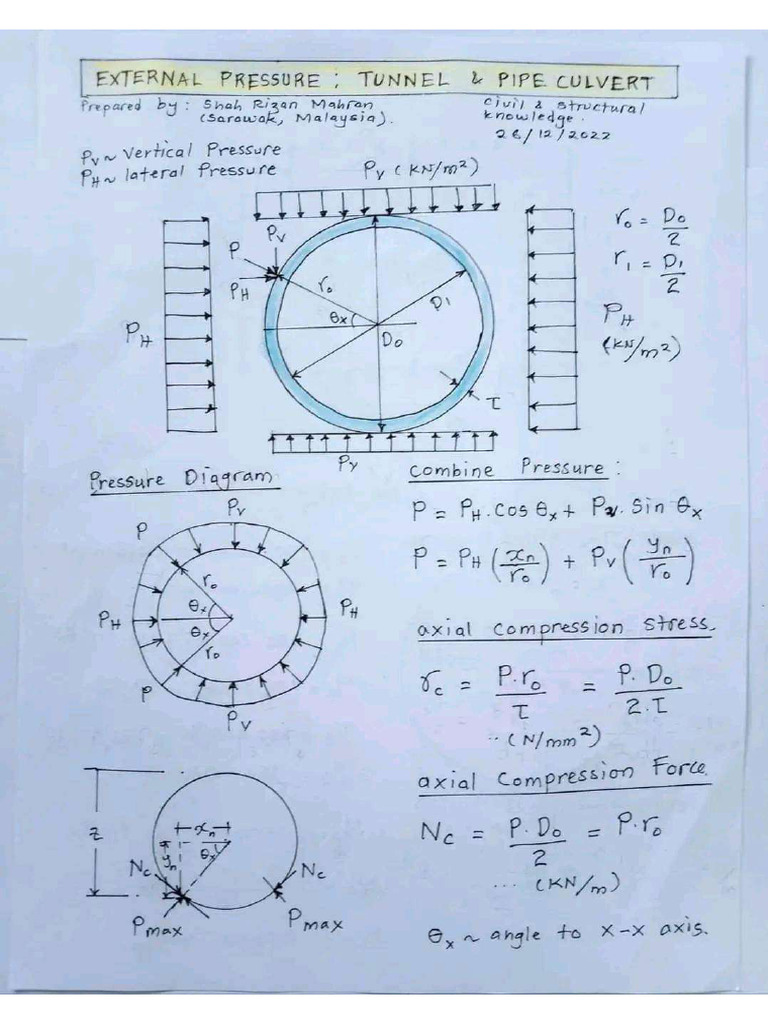 EXTERNAL PRESSURE : TUNNEL & PIPE CULVERT
Prepared by : Shah Rizan Mahran
(Sarawak, Malaysia).
Civil & Structural
knowledge.
26/12/2022
Pv ~ Vertical Pressure
PH ~ lateral Pressure
Pv (KN/m²)
r₀ = D₀/2
r₁ = D₁/2
Pv
P
PH
r₀
θx
D₁
D₀
PH
PH
(KN/m²)
τ
Pv
Pressure Diagram
Pv
P
r₀
θx
θx
r₀
PH
PH
P
Pv
Combine Pressure :
P = PH.cos θx + Pv. sin θx
P = PH (xn/r₀) + Pv (yn/r₀)
axial compression stress.
σc = P.r₀/τ = P.D₀/2.τ
..(N/mm²)
axial Compression Force.
Nc = P.D₀/2 = P.r₀
... (KN/m)
θx ~ angle to x-x axis.
z
xn
yn
θx
Nc
Nc
Pmax
Pmax